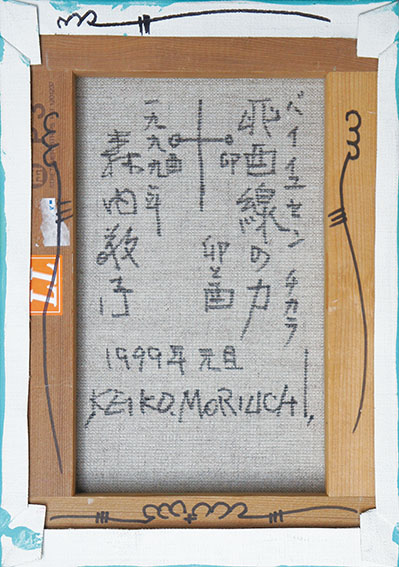 バイイユセン チカラ
酉線の力
卯
卯と酉
酉
一九九九年
森内敬子
1999年 元旦
KEIKO. MORIUCHI,